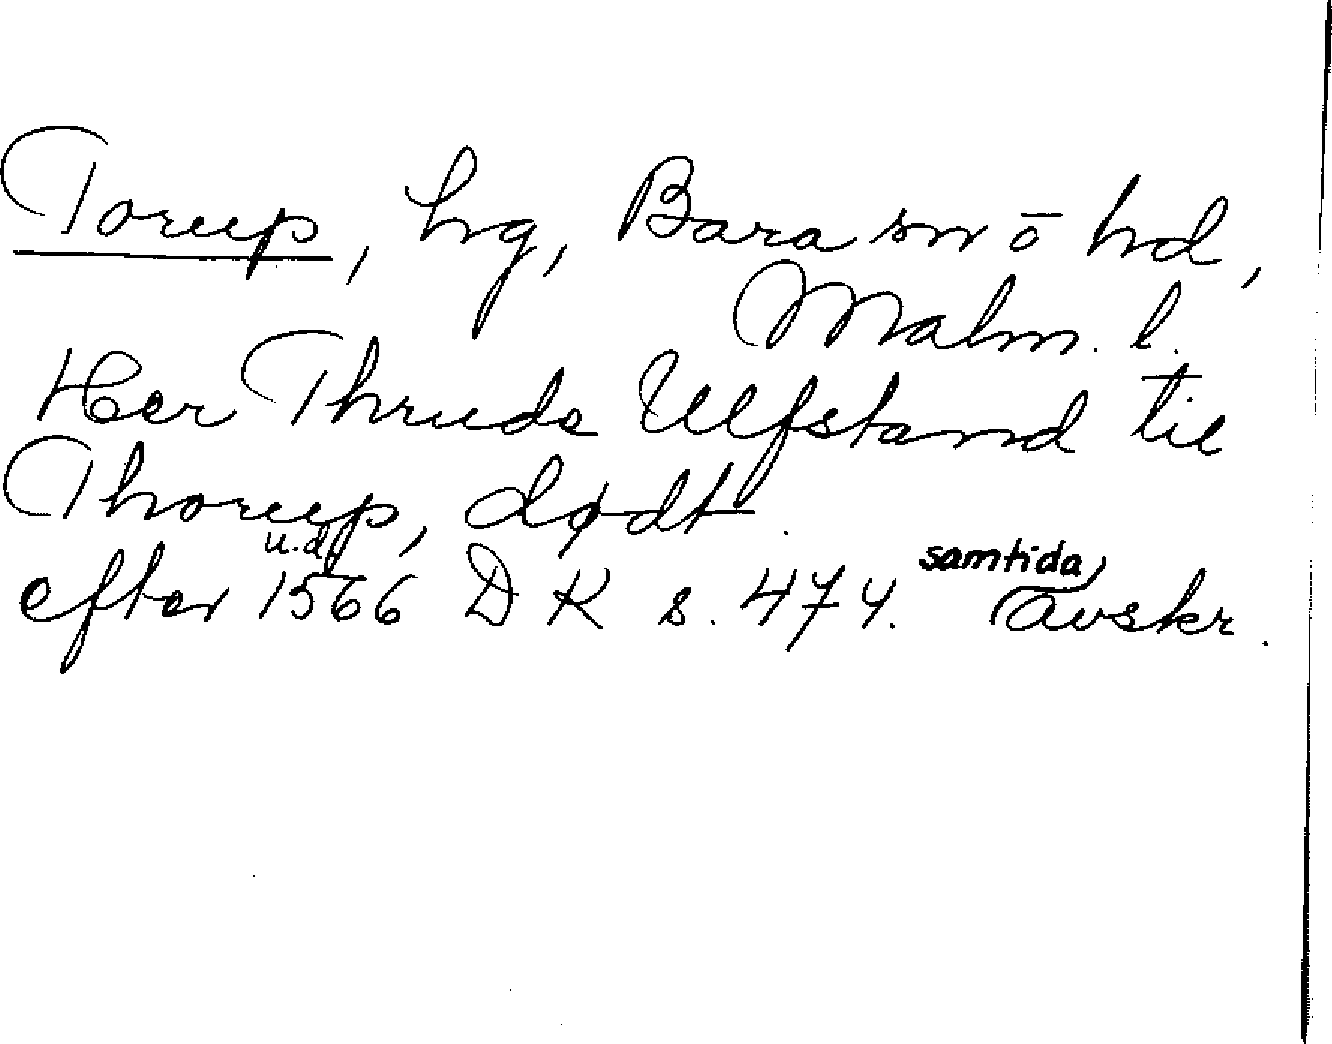 Torup, hg, Bara sn ō hd,
Malm. l.
Her Thrudz Ulfstand til
Thorup, dødt
u.d.
efter 1566 DK s. 474. samtida avskr.